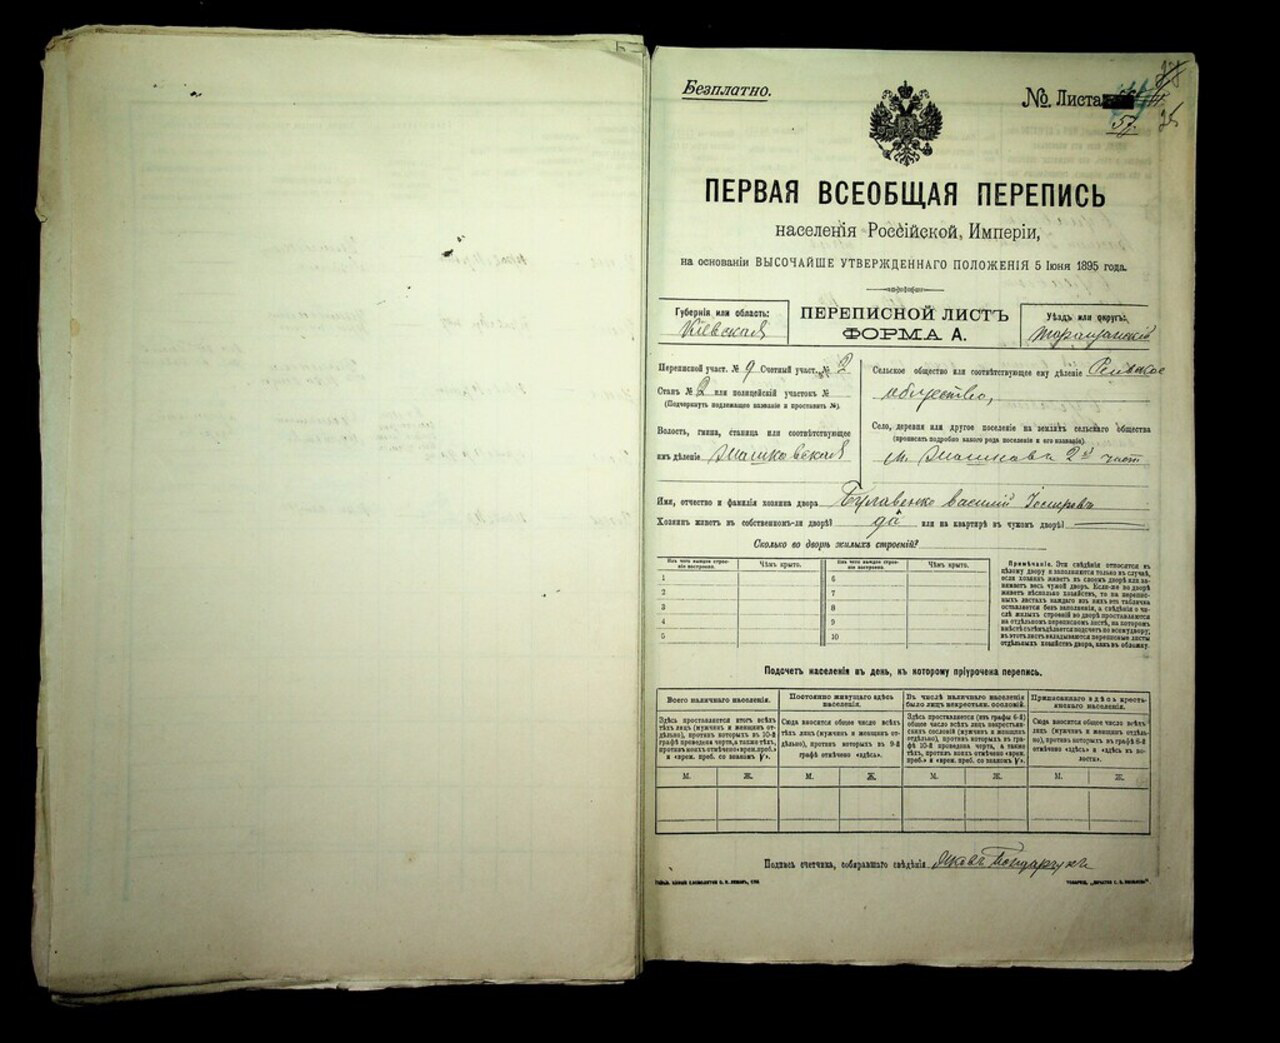 Безплатно.
№ Листа
57.
ПЕРВАЯ ВСЕОБЩАЯ ПЕРЕПИСЬ
населенія Россійской Имперіи,
на основаніи ВЫСОЧАЙШЕ УТВЕРЖДЕННАГО ПОЛОЖЕНІЯ 5 Іюня 1895 года.
Губернія или область:
Кіевская
ПЕРЕПИСНОЙ ЛИСТЪ
ФОРМА А.
Уѣздъ или округъ:
Таращанскій
Переписной участ. № 9 Счетный участ. № 2
Станъ № 2 или полицейскій участокъ №
(Подчеркнуть надлежащее названіе и проставить №).
Волость, гмина, станица или соотвѣтствующее
имъ дѣленіе
Сельское общество или соотвѣтствующее ему дѣленіе
общество,
Село, деревня или другое поселеніе на земляхъ сельскаго общества
(прописать подробно какого рода поселеніе и его названіе).
м. 2й част
Имя, отчество и фамилія хозяина двора Булавенко Василій
Хозяинъ живетъ въ собственномъ-ли дворѣ? да или на квартирѣ въ чужомъ дворѣ?
Сколько во дворѣ жилыхъ строеній?
Изъ чего каждое строеніе построено.
Чѣмъ крыто.
Изъ чего каждое строеніе построено.
Чѣмъ крыто.
1
2
3
4
5
6
7
8
9
10
Примѣчаніе. Эти свѣдѣнія относятся къ
цѣлому двору и заполняются только въ случаѣ,
если хозяинъ живетъ въ своемъ дворѣ или занимаетъ
весь чужой дворъ. Если-же во дворѣ
живетъ нѣсколько хозяйствъ, то на переписныхъ
листахъ каждаго изъ нихъ эта табличка
оставляется безъ наполненія, а свѣдѣнія о числѣ
жилыхъ строеній во дворѣ проставляются
на отдѣльномъ переписномъ листѣ, на которомъ
вмѣстѣ съ тѣмъ дѣлается подсчетъ по всему двору;
въ этотъ листъ вкладываются переписные листы
отдѣльныхъ хозяйствъ двора, какъ въ обложку.
Подсчетъ населенія въ день, къ которому пріурочена перепись.
Всего наличнаго населенія.
Здѣсь проставляется итогъ всѣхъ
лицъ (мужчинъ и женщинъ отдѣльно),
противъ которыхъ въ 10-й
графѣ проведена черта, а также тѣхъ,
противъ коихъ отмѣчено «врем. преб.»
и «врем. преб. со знакомъ V».
Постоянно живущаго здѣсь
населенія.
Сюда вносится общее число всѣхъ
тѣхъ лицъ (мужчинъ и женщинъ отдѣльно),
противъ которыхъ въ 9-й
графѣ отмѣчено «здѣсь».
Въ числѣ наличнаго населенія
было лицъ некрестьян. сословій.
Здѣсь проставляется (въ графы 6-й)
общее число всѣхъ лицъ некрестьянскихъ
сословій (мужчинъ и женщинъ
отдѣльно), противъ которыхъ въ графѣ
10-й проведена черта, а также
тѣхъ, противъ коихъ отмѣчено «врем.
преб.» и «врем. преб. со знакомъ V».
Приписаннаго здѣсь крестьянскаго
населенія.
Сюда вносится общее число всѣхъ
лицъ (мужчинъ и женщинъ отдѣльно),
противъ которыхъ въ графѣ 8
отмѣчено «здѣсь» и «здѣсь въ волости».
М. Ж. М. Ж. М. Ж. М. Ж.
Подпись счетчика, собиравшаго свѣдѣнія Яковъ Бондарукъ